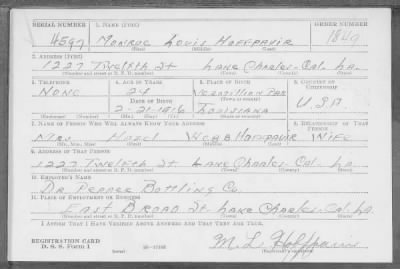 SERIAL NUMBER 1. NAME (PRINT) ORDER NUMBER
4597 MONROE LOUIS HOFFPAUIR 1849
(First) (Middle) (Last)
2. ADDRESS (PRINT)
1227 TWELFTH ST LAKE CHARLES - CAL - LA.
(Number and street or R. F. D. number) (Town) (County) (State)
3. TELEPHONE 4. AGE IN YEARS 5. PLACE OF BIRTH 6. COUNTRY OF CITIZENSHIP
NONE 24 VERMILLION PAR
DATE OF BIRTH (Town or county)
2-21-1916 LOUISIANA U.S.A.
(Exchange) (Number) (Mo.) (Day) (Yr.) (State or country)
7. NAME OF PERSON WHO WILL ALWAYS KNOW YOUR ADDRESS 8. RELATIONSHIP OF THAT PERSON
MRS HAZEL WEBB HOFFPAUIR WIFE
(Mr., Mrs., Miss) (First) (Middle) (Last)
9. ADDRESS OF THAT PERSON
1227 TWELFTH ST LAKE CHARLES - CAL - LA
(Number and street or R. F. D. number) (Town) (County) (State)
10. EMPLOYER'S NAME
DR PEPPER BOTTLING CO.
11. PLACE OF EMPLOYMENT OR BUSINESS
EAST BROAD ST - LAKE CHARLES - CAL LA
(Number and street or R. F. D. number) (Town) (County) (State)
I AFFIRM THAT I HAVE VERIFIED ABOVE ANSWERS AND THAT THEY ARE TRUE.
REGISTRATION CARD
D. S. S. Form 1 (over) M L Hoffpauir
(Registrant's signature)